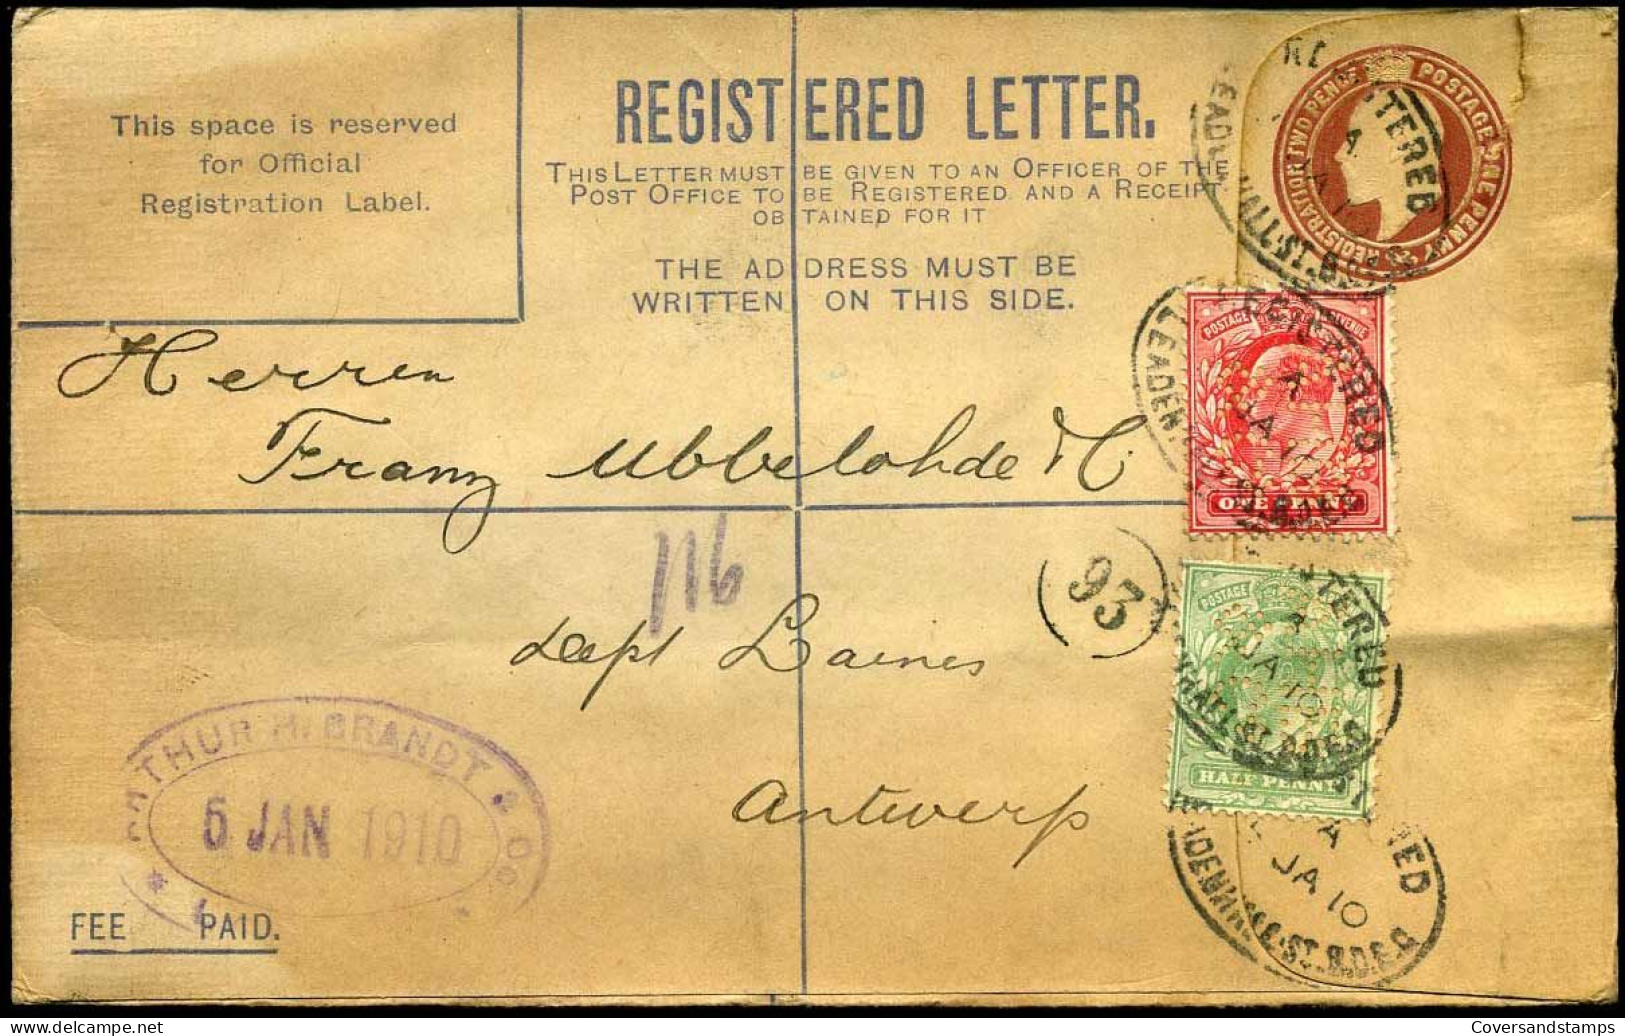 This space is reserved
for Official
Registration Label.
REGISTERED LETTER.
THIS LETTER MUST BE GIVEN TO AN OFFICER OF THE
POST OFFICE TO BE REGISTERED AND A RECEIPT
OBTAINED FOR IT
THE ADDRESS MUST BE
WRITTEN ON THIS SIDE.
REGISTRATION TWO PENCE POSTAGE ONE PENNY
REGISTERED
LEADENHALL ST. B.O.E.C
Herren
Franz Ubbelohde & C.
Dept Laines
Antwerp
93
POSTAGE REVENUE
ONE PENNY
REGISTERED
A
JA 10
POSTAGE
HALF PENNY
REGISTERED
A
JA 10
LEADENHALL ST. B.O.E.C
A
JA 10
ARTHUR H. BRANDT & Co
5 JAN 1910
FEE PAID.
Coversandstamps